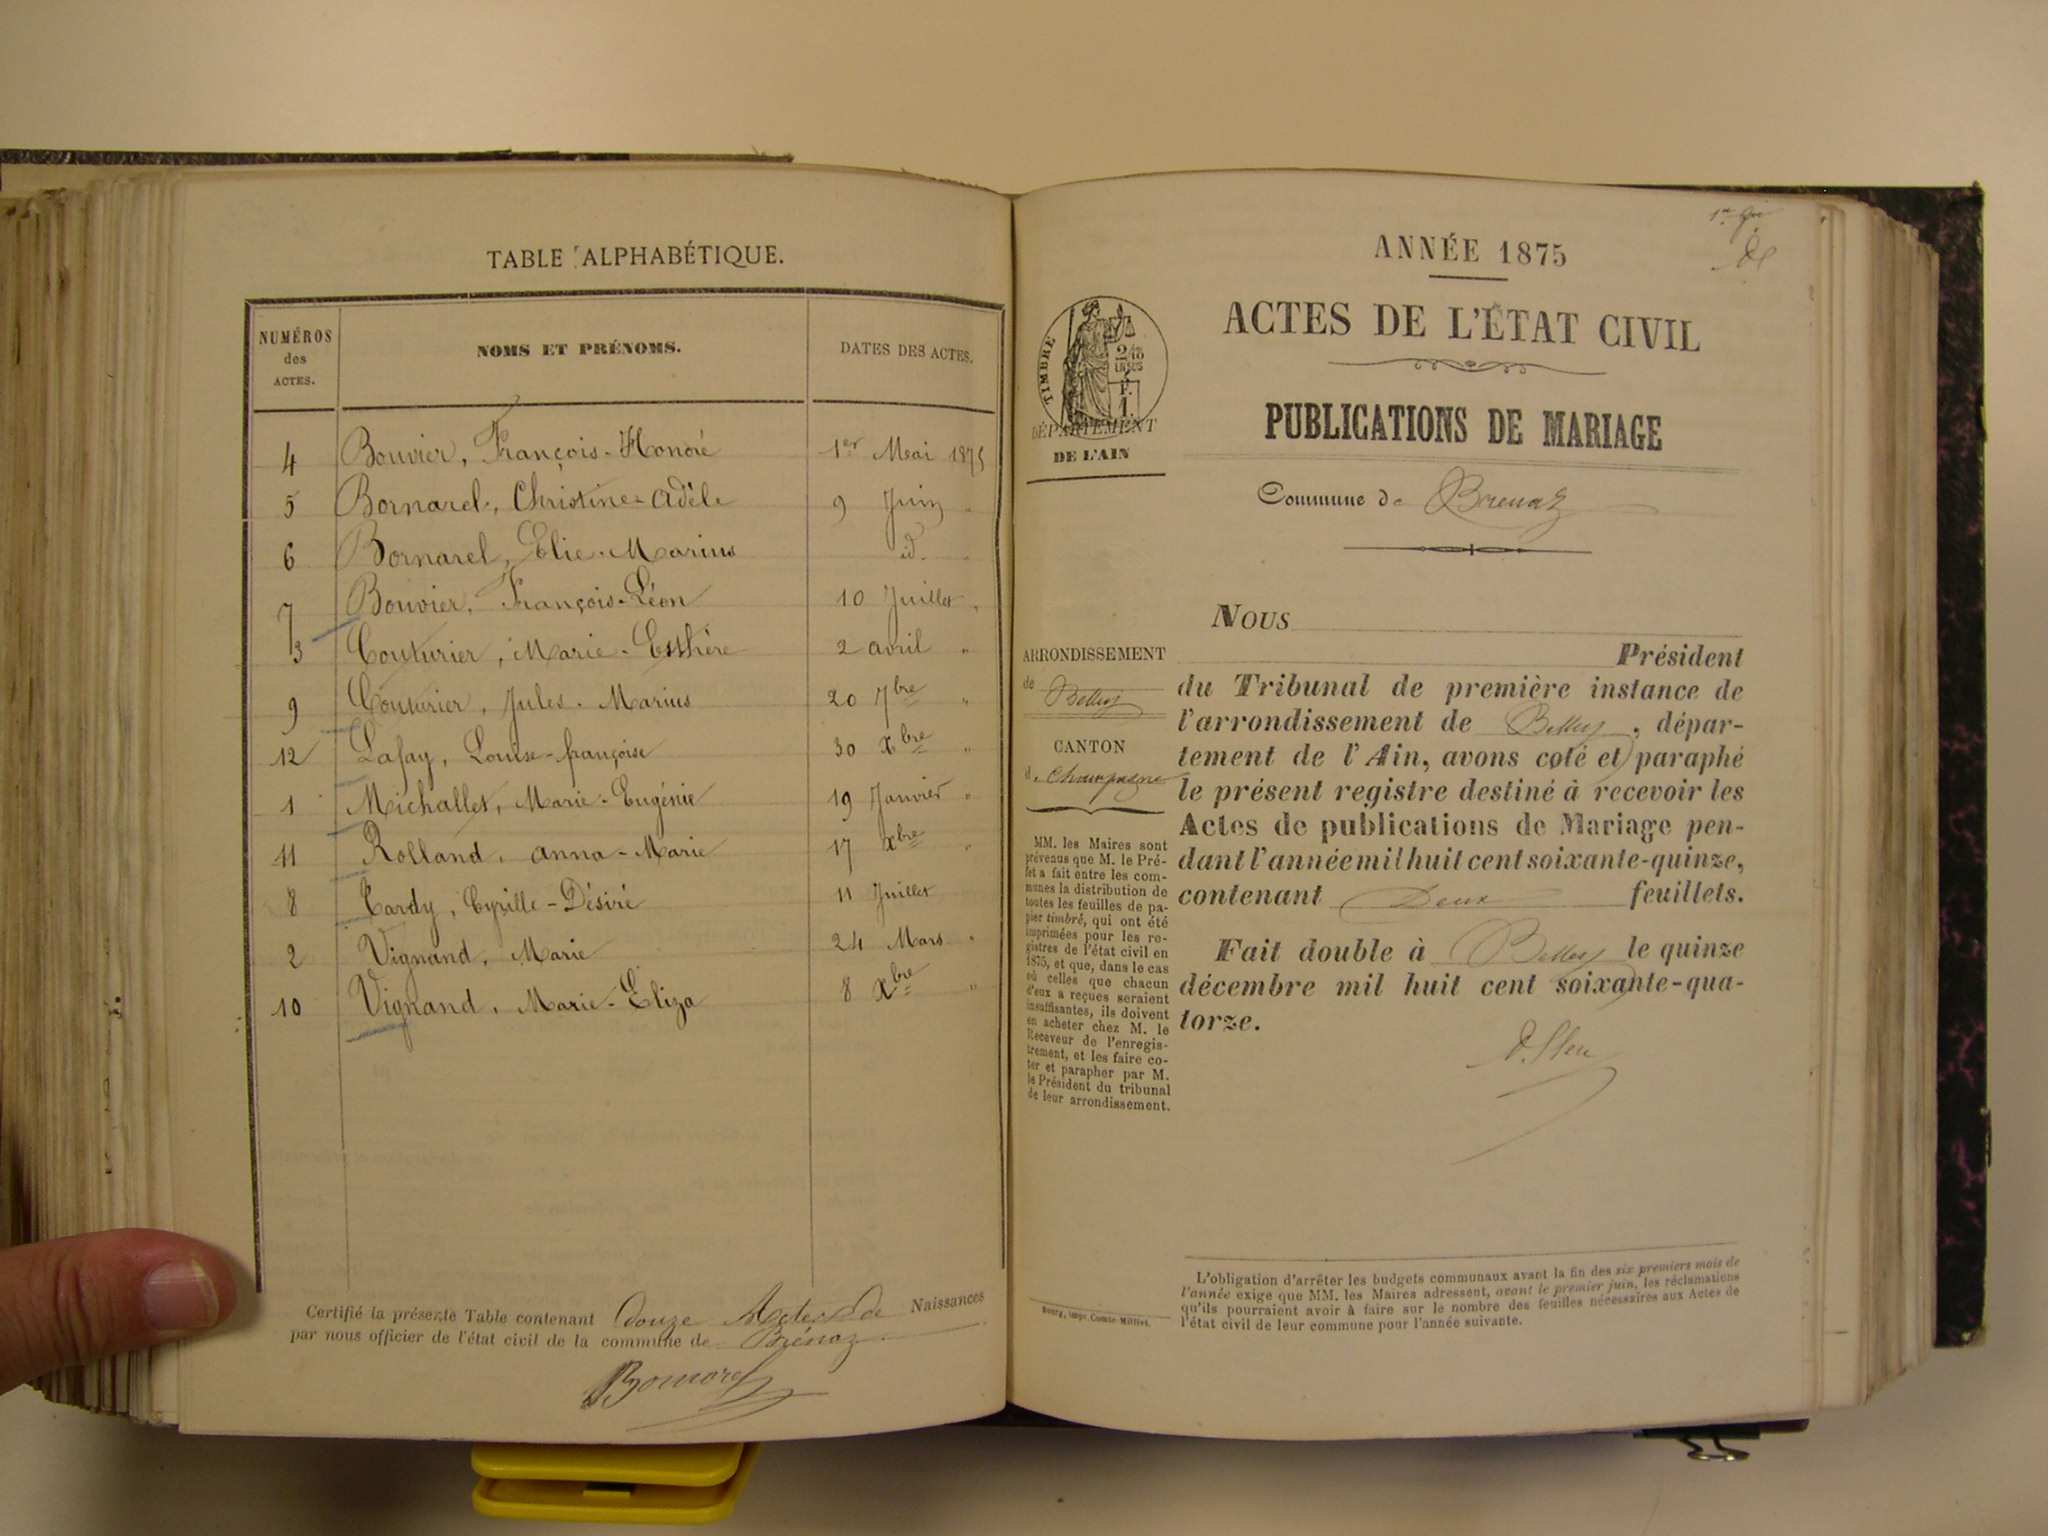 TABLE ALPHABÉTIQUE.
NUMÉROS des ACTES.
NOMS ET PRÉNOMS.
DATES DES ACTES.
4 Bouvier, François-Honoré 1er Mai 1875
5 Bornarel, Christine-Adèle 9 Juin "
6 Bornarel, Elie-Marius id. "
7 Bouvier, François-Léon 10 Juillet "
3 Couturier, Marie-Esthère 2 avril "
9 Couturier, Jules-Marius 20 7bre "
12 Lafay, Louise-françoise 30 Xbre "
1 Michallet, Marie-Eugénie 19 Janvier "
11 Rolland, anna-Marie 17 Xbre "
8 Tardy, Cyrille-Désiré 11 Juillet
2 Vignand, Marie 24 Mars "
10 Vignand, Marie-Eliza 8 Xbre "
Certifié la présente Table contenant douze Actes de Naissances
par nous officier de l'état civil de la commune de Brénaz
Bornarel
ANNÉE 1875
ACTES DE L'ÉTAT CIVIL
PUBLICATIONS DE MARIAGE
Commune de Brénaz
TIMBRE
DÉPARTEMENT
DE L'AIN
ARRONDISSEMENT
de Belley
CANTON
d. Champagne
MM. les Maires sont
prévenus que M. le Pré-
fet a fait entre les com-
munes la distribution de
toutes les feuilles de pa-
pier timbré, qui ont été
imprimées pour les re-
gistres de l'état civil en
1875, et que, dans le cas
où celles que chacun
d'eux a reçues seraient
insuffisantes, ils doivent
en acheter chez M. le
Receveur de l'enregis-
trement, et les faire co-
ter et parapher par M.
le Président du tribunal
de leur arrondissement.
NOUS
Président
du Tribunal de première instance de
l'arrondissement de Belley, dépar-
tement de l'Ain, avons coté et paraphé
le présent registre destiné à recevoir les
Actes de publications de Mariage pen-
dant l'année mil huit cent soixante-quinze,
contenant Deux feuillets.
Fait double à Belley le quinze
décembre mil huit cent soixante-qua-
torze.
L'obligation d'arrêter les budgets communaux avant la fin des six premiers mois de
l'année exige que MM. les Maires adressent, avant le premier juin, les réclamations
qu'ils pourraient avoir à faire sur le nombre des feuilles nécessaires aux Actes de
l'état civil de leur commune pour l'année suivante.
Bourg, impr. Comte-Milliet.